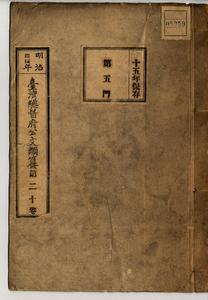 十五年保存
第五門
明治
臺灣總督府公文類纂
第二十卷